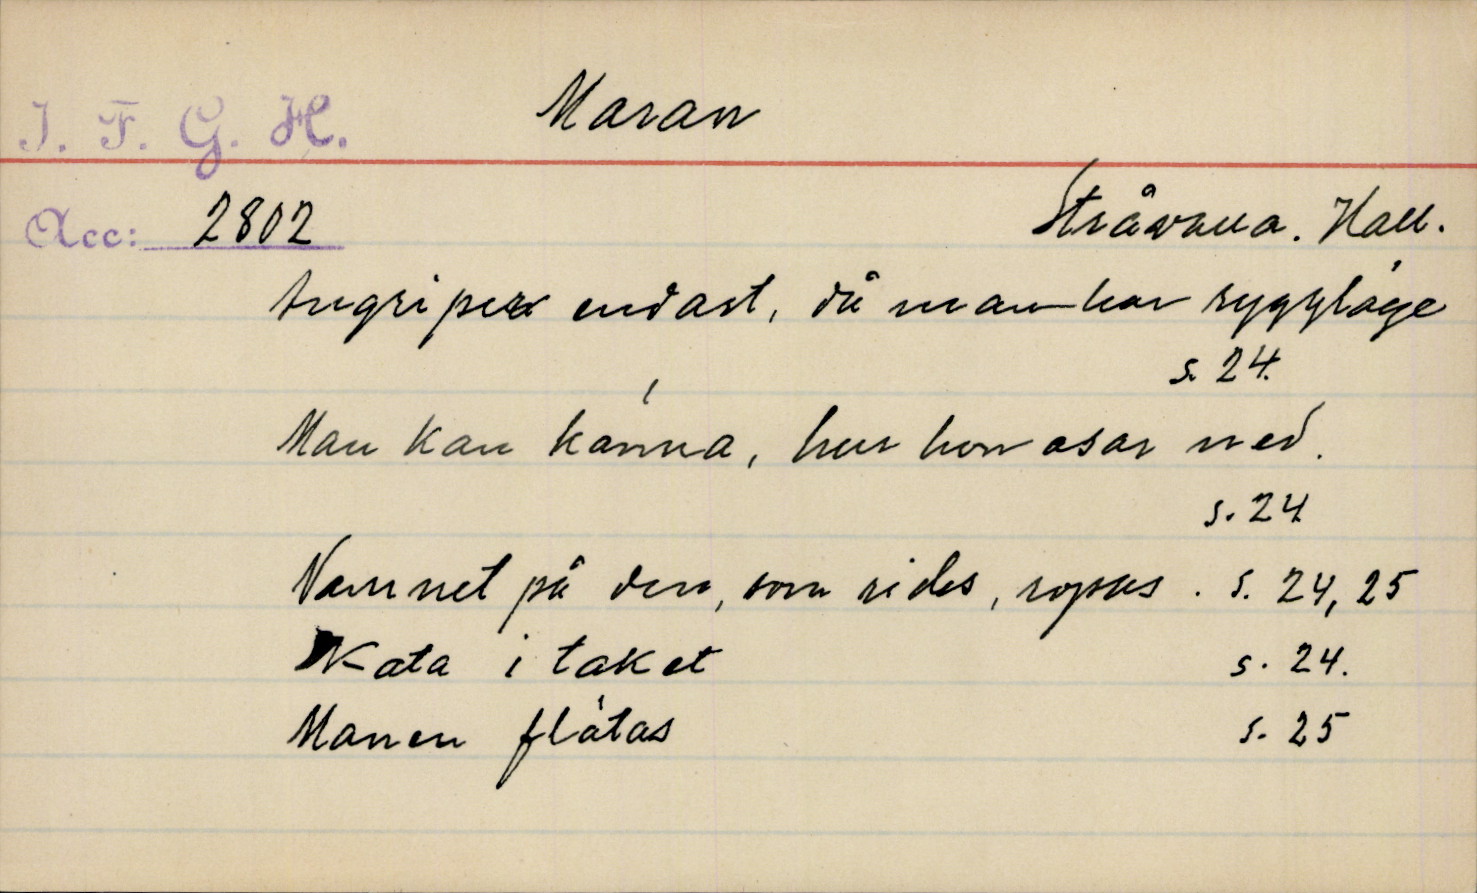 I. F. G. H.
Maran
Acc: 2802
Stråvalla. Hall.
Angriper endast, då man har ryggläge
s. 24.
Man kan känna, hur hon asar ned.
s. 24
Namnet på den, som rides, ropas. s. 24, 25
Kata i taket s. 24.
Manen flätas s. 25